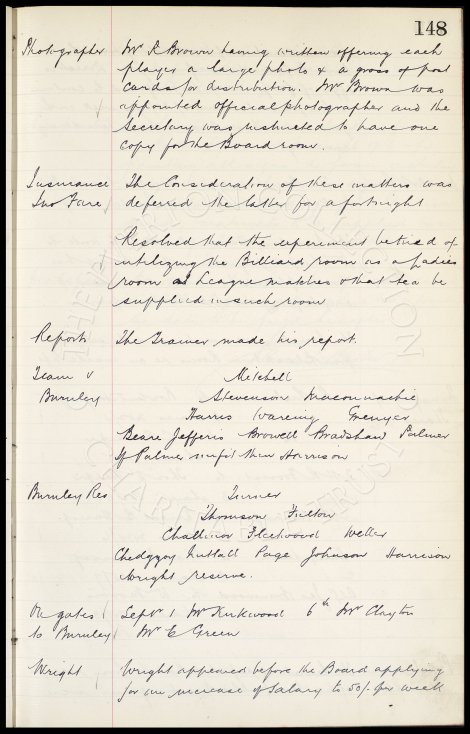 148
Photographer Mr R Brown having written offering each
player a large photo & a gross of post
cards for distribution. Mr Brown was
appointed official photographer and the
Secretary was instructed to have one
copy for the Boardroom.
Insurance The Consideration of these matters was
deferred the latter for a fortnight
Resolved that the experiment be tried of
utilizing the Billiard room as a Ladies
room at League matches & that tea be
supplied in such room
Report The Trainer made his report.
Team v Mitchell
Burnley Stevenson Maconnachie
Harris Wareing Grenyer
Beare Jefferis Browell Bradshaw Palmer
If Palmer unfit then Harrison
Burnley Res Turner
Thomson Fulton
Challinor Fleetwood Weller
Chedgzoy Nuttall Page Johnson Harrison
Wright reserve.
On gates Sept 1 Mr Kirkwood 6th Mr Clayton
to Burnley Mr E Green
Wright Wright appeared before the Board applying
for an increase of Salary to 50/- per week